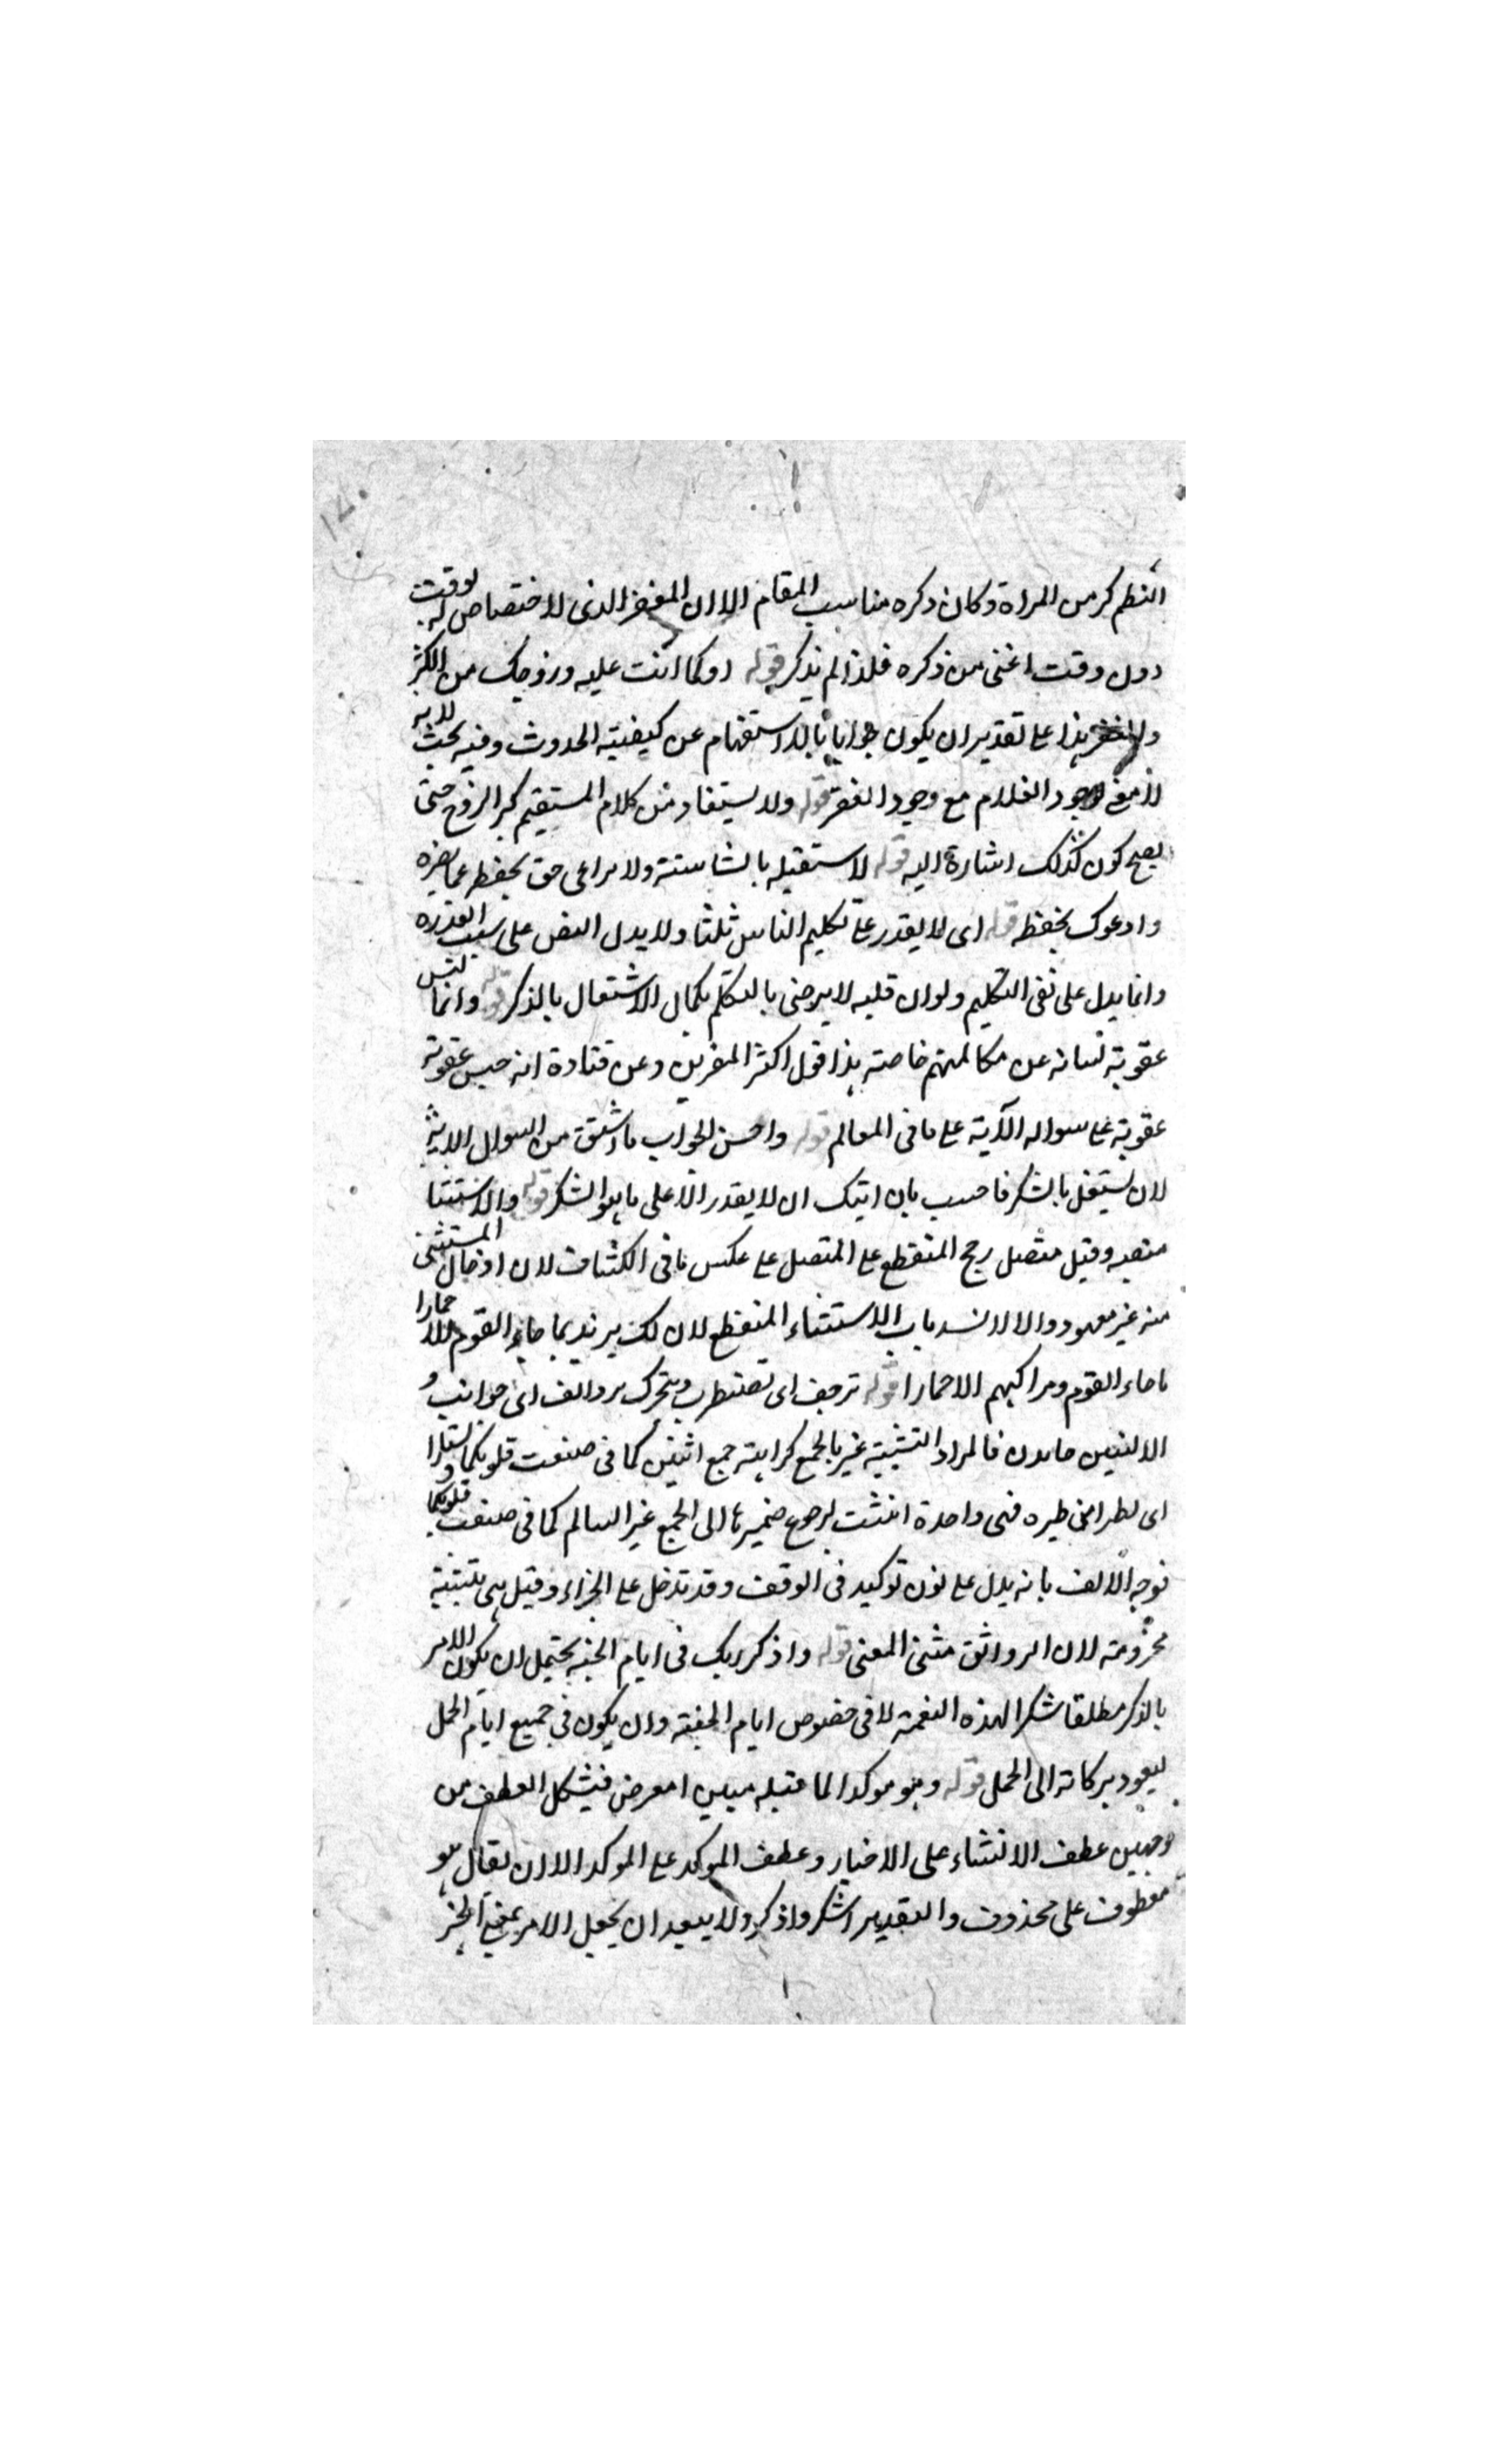 النظم كبر من المراة وكان ذكره مناسب المقام الا ان العقر الذى لا اختصاص له بوقت
دون وقت اغنى من ذكره فلذا لم يذكر قوله او كما انت عليه وزوجك من الكبر
والعقر هذا على تقدير ان يكون جوابا بالاستفهام عن كيفية الحدوث وفيه بحث لانه
لا مع وجود الغلام مع وجود العقر قوله ولا يستفاد من كلام المستقيم كبر الزوج حتى
يصح كون كذلك اشارة اليه قوله لا استقبله بالشاشة ولا يراعى حق يحفظه عما يضره
وادعوك بحفظه قوله اى لا يقدر على تكليم الناس ثلثا ولا يدل النص على سلب القدرة
وانما يدل على نفى التكليم ولو ان قلبه لا يرضى بالتكلم بكمال الاشتغال بالذكر قوله وانما
عقوبة لسانه عن مكالمتهم خاصة هذا قول اكثر المفسرين وعن قتادة انه حبس عقوبة
عقوبة على سواله الآية على ما فى المعالم قوله واحسن الجواب ما اشتق من السوال
لان يشتغل بالشكر فاجيب بان ايتك ان لا يقدر الا على ما هو الشكر قوله والاستثنا
وقيل متصل رجح المنقطع على المتصل على عكس ما فى الكشاف لان ادخال المستثنى
منه غير معهود والا لانسد باب الاستثناء المنقطع لان لك ما جاء القوم الا حمارا
ما جاء القوم ومراكبهم الا حمارا قوله ترجف اى تضطرب وتتحرك روانف اى جوانب و
الاليتين فالمراد التثنية عبر بالجمع كراهة جمع اثنين كما فى صغت قلوبكما و
اى فهى واحدة انثت لرجوع ضميرها الى الجمع غير السالم كما فى صغت قلوبكما
توجه الالف بانه بدل على نون توكيد فى الوقف وقد تدخل على الجزاء وقيل هى تثنية
مجزومة لان الروانق مثنى المعنى قوله واذكر ربك فى ايام يحتمل ان يكون الامر
بالذكر مطلقا شكرا لهذه النعمة لا فى خصوص ايام وان يكون فى جميع ايام الحمل
ليعود بركاته الى الحمل قوله وهو موكد لما قبله مبين فيشكل العطف من
وجهين عطف الانشاء على الاخبار وعطف الموكد على الموكد الا ان يقال هو
معطوف على محذوف والتقدير اشكر واذكر ولا يبعد ان يجعل الامر بمعنى الخبر